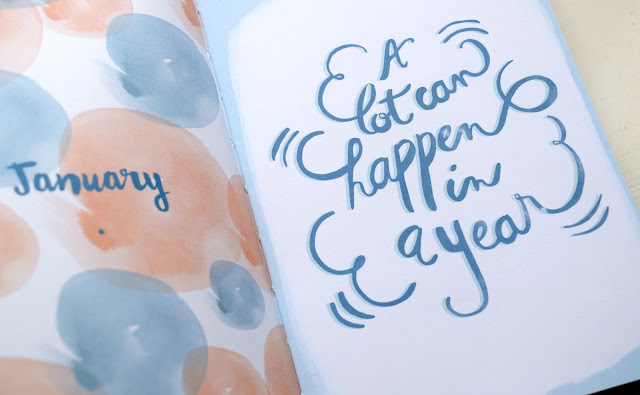 January
A
lot can
happen
in
a year